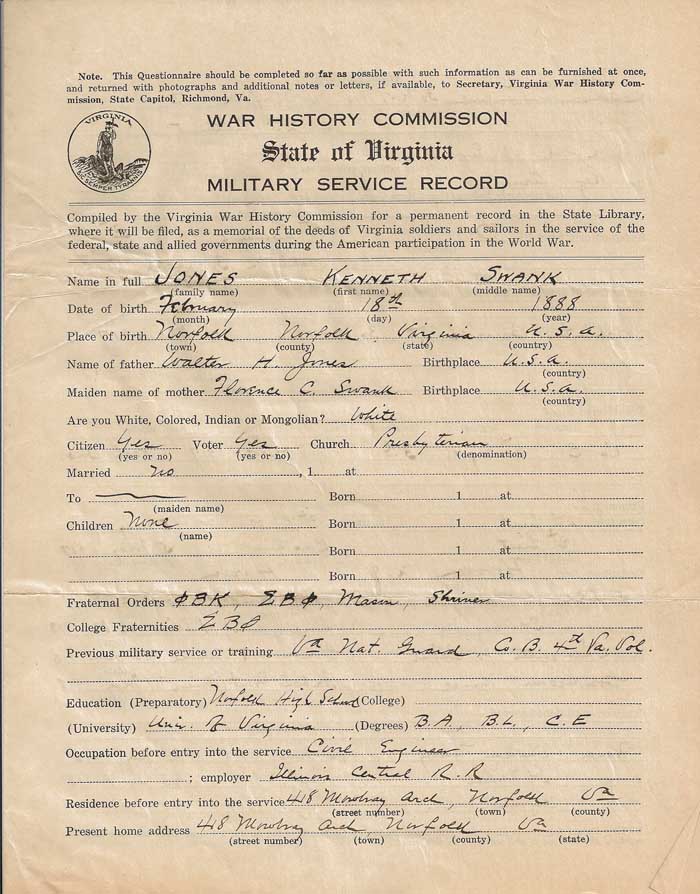 Note. This Questionnaire should be completed so far as possible with such information as can be furnished at once,
and returned with photographs and additional notes or letters, if available, to Secretary, Virginia War History Com-
mission, State Capitol, Richmond, Va.
VIRGINIA
SIC SEMPER TYRANNIS
WAR HISTORY COMMISSION
State of Virginia
MILITARY SERVICE RECORD
Compiled by the Virginia War History Commission for a permanent record in the State Library,
where it will be filed, as a memorial of the deeds of Virginia soldiers and sailors in the service of the
federal, state and allied governments during the American participation in the World War.
Name in full JONES KENNETH SWANK
(family name) (first name) (middle name)
Date of birth February 18th 1888
(month) (day) (year)
Place of birth Norfolk Norfolk Virginia U.S.A.
(town) (county) (state) (country)
Name of father Walter H. Jones Birthplace U.S.A.
(country)
Maiden name of mother Florence C. Swank Birthplace U.S.A.
(country)
Are you White, Colored, Indian or Mongolian? White
Citizen Yes Voter Yes Church Presbyterian
(yes or no) (yes or no) (denomination)
Married no , 1 at
To Born 1 at
(maiden name)
Children None Born 1 at
(name)
Born 1 at
Born 1 at
Fraternal Orders ΦBK, ΣBΦ, Mason, Shriner
College Fraternities ΣBΦ
Previous military service or training Va Nat. Guard, Co. B. 4th Va. Vol.
Education (Preparatory) Norfolk High School (College)
(University) Univ. of Virginia (Degrees) B.A., B.L., C.E
Occupation before entry into the service Civil Engineer
; employer Illinois Central R.R
Residence before entry into the service 418 Mowbray Arch, Norfolk Va
(street number) (town) (county)
Present home address 418 Mowbray Arch, Norfolk Va
(street number) (town) (county) (state)